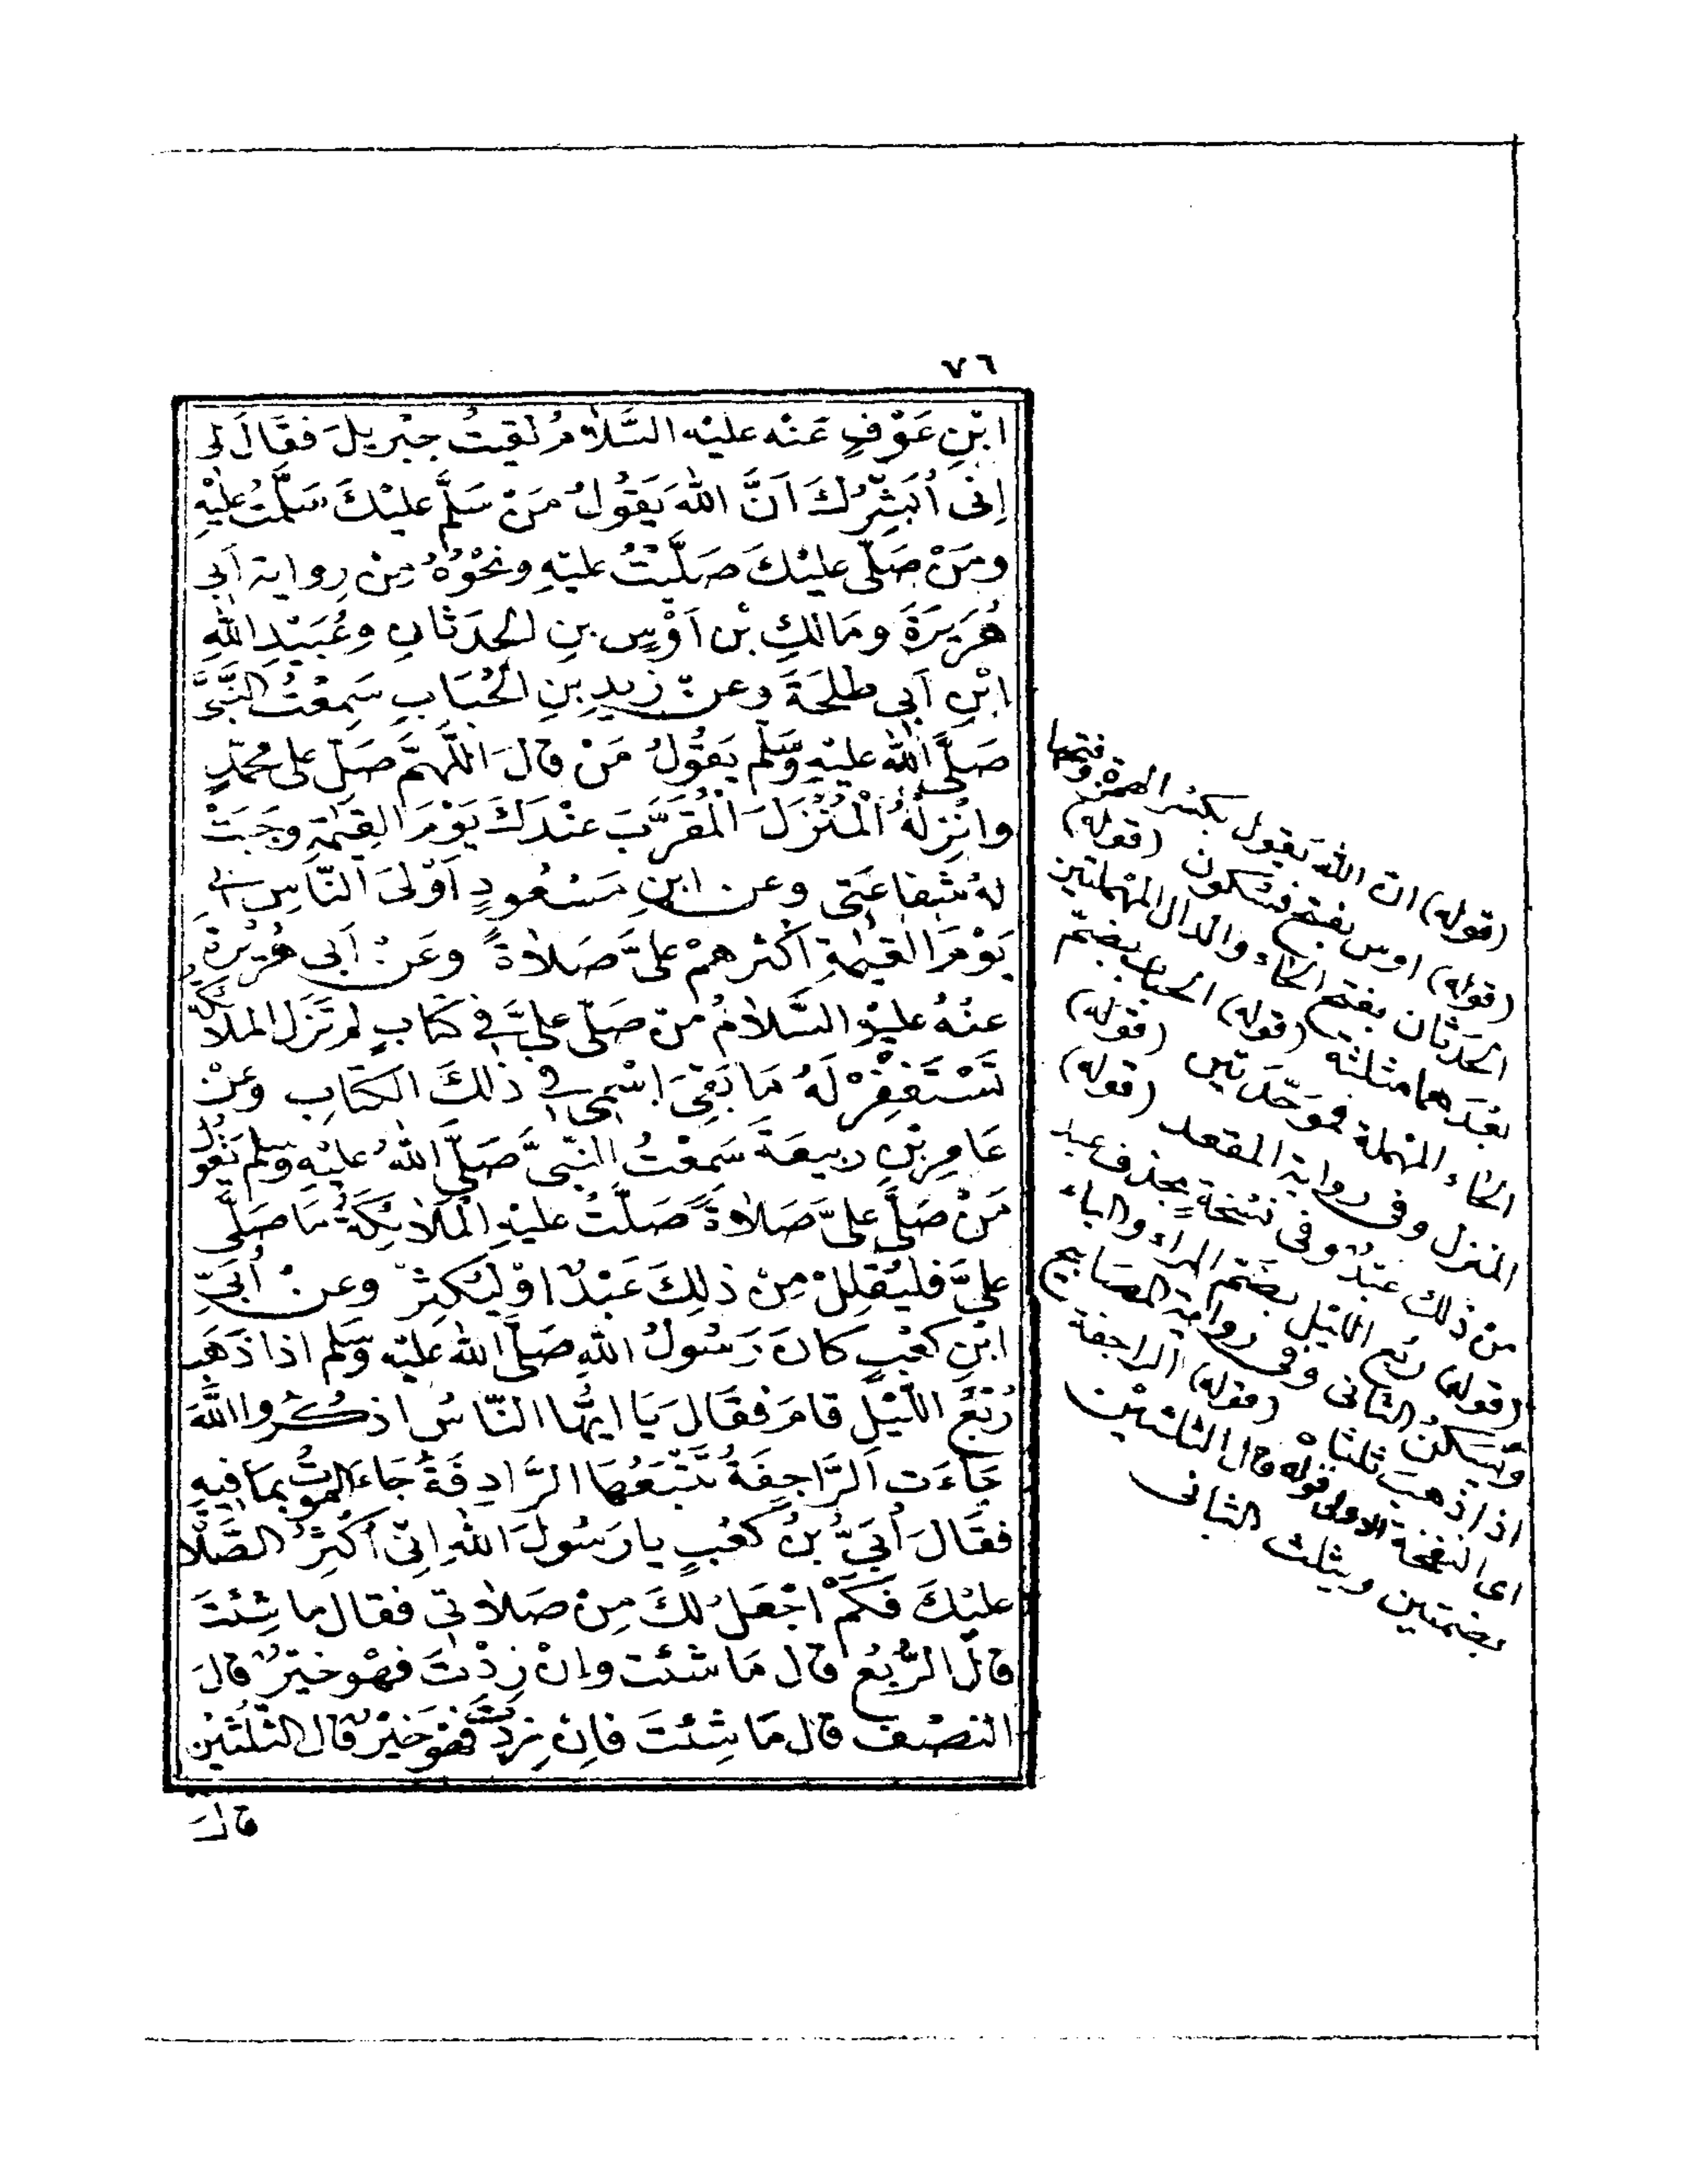 ٧٦
ابْنِ عَوْفٍ عَنْه عليْه السَّلامُ لَقيتُ جِبْريلَ فقَالَ لي
اِنّى اُبَشِّرُكَ اَنَّ اللهَ يَقُولُ مَنْ سَلَّمَ عليْكَ سَلَّمْتُ عليْهِ
ومَنْ صَلّى عليْكَ صَلَّيْتُ عليْهِ ونَحْوُهُ مِنْ رِواية اَبى
هُرَيرَةَ ومَالكِ بْن اَوْسِ بنِ الحَدَثَانِ وعُبَيْدِ اللهِ
ابْنِ اَبى طلحَةَ وعنْ زيدِ بنِ الحُبَابِ سَمِعْتُ النَّبىَّ
صَلَّى اللهُ عليْهِ وسَلَّم يَقُولُ مَنْ قالَ اللّهُمَّ صَلِّ على مُحمّدٍ
وانْزِلْهُ الْمُنْزَلَ الْمُقَرَّبَ عنْدَكَ يَوْمَ القِيٰمَةِ وجَبَتْ
لهُ شَفاعَتى وعن ابنِ مَسْعُودٍ اَوْلَى النَّاسِ بى
يَوْمَ القِيٰمَةِ اَكْثرهمْ علىَّ صَلاةً وعَنْ اَبى هُرَيْرةَ
عنْهُ عليْهِ السَّلامُ مَنْ صَلّى علىَّ فى كتَابٍ لم تَزَل الملائكةُ
تَسْتَغفِرُ لَهُ مَا بَقِىَ اسْمى فى ذلكَ الكتَابِ وعَنْ
عَامِرِ بْنِ ربيعَةَ سَمِعْتُ النّبىَّ صَلَّى اللهُ عليْهِ وسلم يَقُولُ
مَنْ صَلَّى علىَّ صَلاةً صَلَّتْ عليْهِ الْمَلائكَةُ مَا صَلَّى
علىَّ فليُقْلِلْ مِنْ ذلِكَ عَبْدٌ اوْ لِيُكثِرْ وعنْ اُبَىِّ
ابْنِ كعْبٍ كانَ رَسُولُ اللهِ صَلَّى اللهُ عليْه وسَلم اذا ذَهَبَ
رُبْعُ اللَّيْلِ قامَ فقَالَ يَا ايُّها النّاسُ اذكُروا اللهَ
جَاءَت الرَّاجِفَةُ تَتْبَعُهَا الرَّادِفَةُ جَاءَ الموْتُ بمَا فيهِ
فقَالَ اُبَىُّ بْنُ كعْبٍ يا رَسُولَ اللهِ اِنّى اُكْثِرُ الصَّلاة
عليْكَ فكَمْ اجْعَلُ لكَ مِنْ صَلاتى فقال ما شِئْتَ
قالَ الرُّبُعُ قال مَا شئت وانْ زِدْتَ فهْو خيْرٌ قالَ
النصْفَ قال مَا شِئْتَ فاِنْ زِدْتَ فهُوَ خَيْرٌ قال الثلُثَيْن
قالَ
(قوله) ان الله يَقول بكسْر الهمْزة وفتحها
(قوله) اوس بفتح فسكون (قوله)
الحدَثان بفتح الحاء والدال المهْملتين
بعْدَهما مثلثة (قوله) الحباب بضمّ
الحاء المهْملة فموَحّدَتين (قوله)
المنزل وفى رواية المقعد (قوله)
من ذلك عبْدٌ وفى نسْخةٍ بحذف عبد
(قوله) ربُع الليْل بضمّ الراء والباء
ويُسكنُ الثانى وفى رواية المصَابيح
اذا ذهبَ ثلثاه (قوله) الراجفة
اى النفخة الاولى قوله قال الثلثيْن
بضمتين ويثلث الثانى